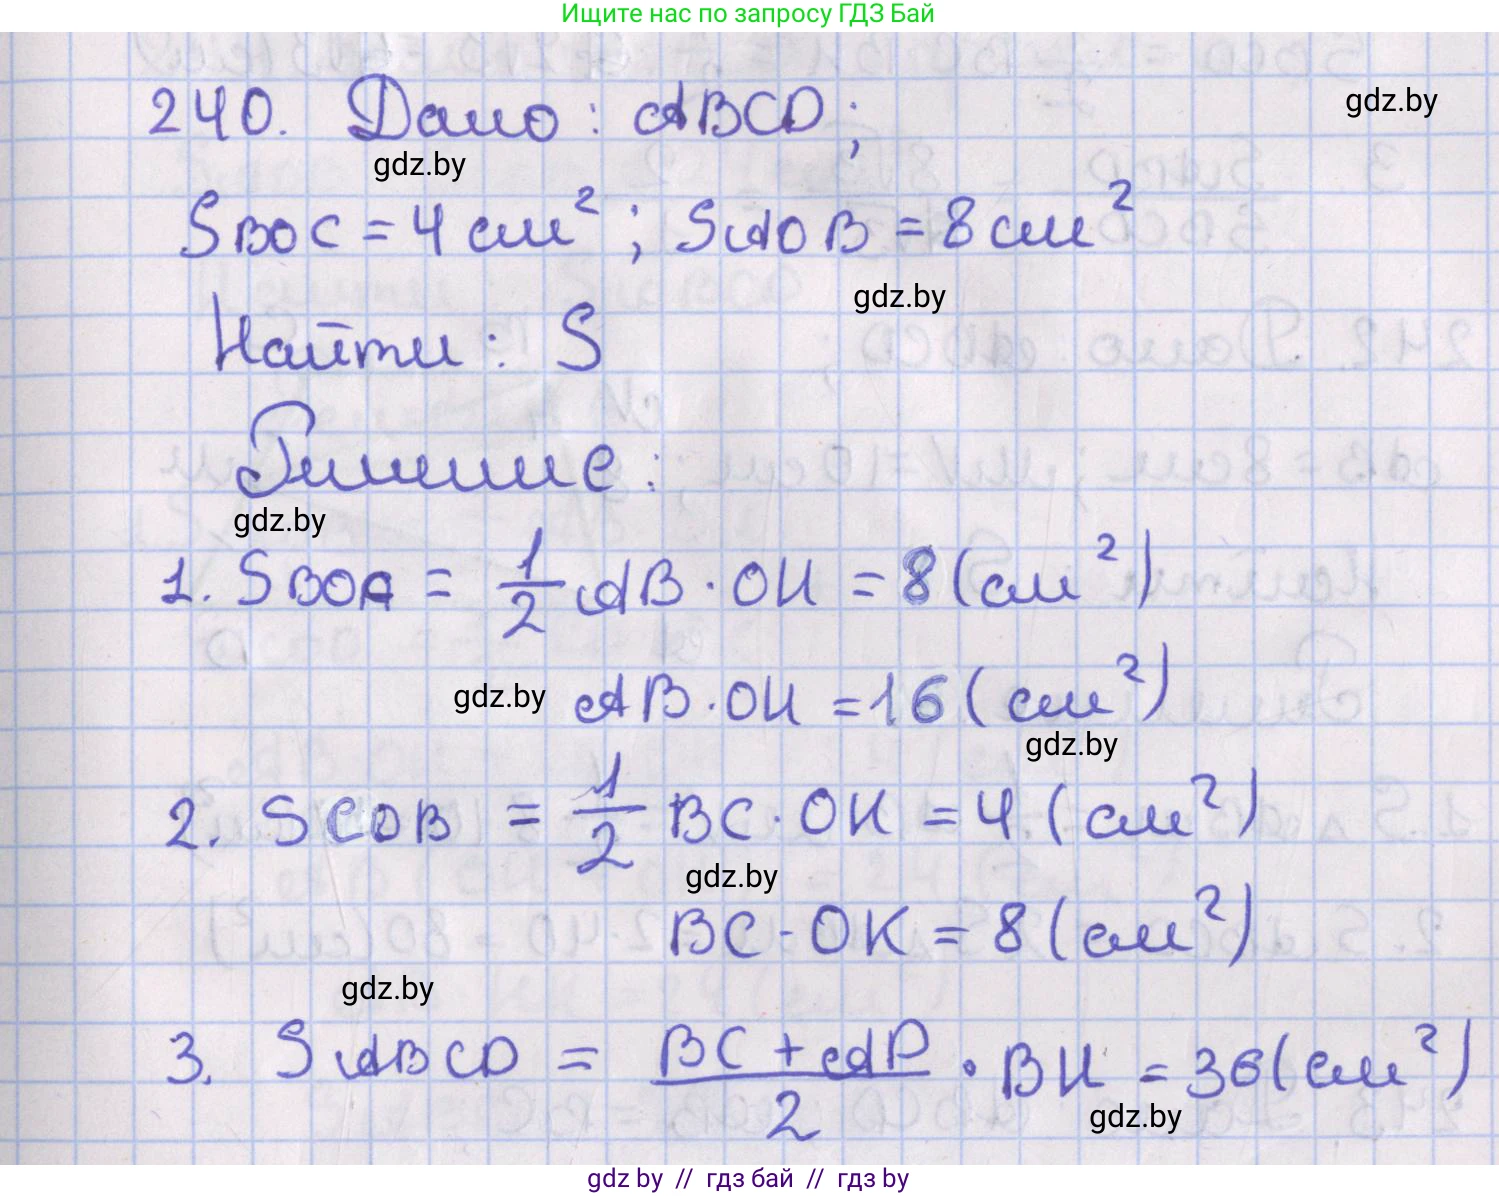 Ищите нас по запросу ГДЗ Бай
240. Дано: ABCD;
gdz.by
gdz.by
SBOC = 4 см²; SAOB = 8 см²
gdz.by
Найти: S
Решение:
gdz.by
1. SBOA = 1/2 AB · OH = 8 (см²)
gdz.by
AB · OH = 16 (см²)
gdz.by
2. SCOB = 1/2 BC · OK = 4 (см²)
gdz.by
BC · OK = 8 (см²)
gdz.by
3. SABCD = BC + AD / 2 · BH = 36 (см²)
gdz.by
gdz by // гдз бай // гдз by